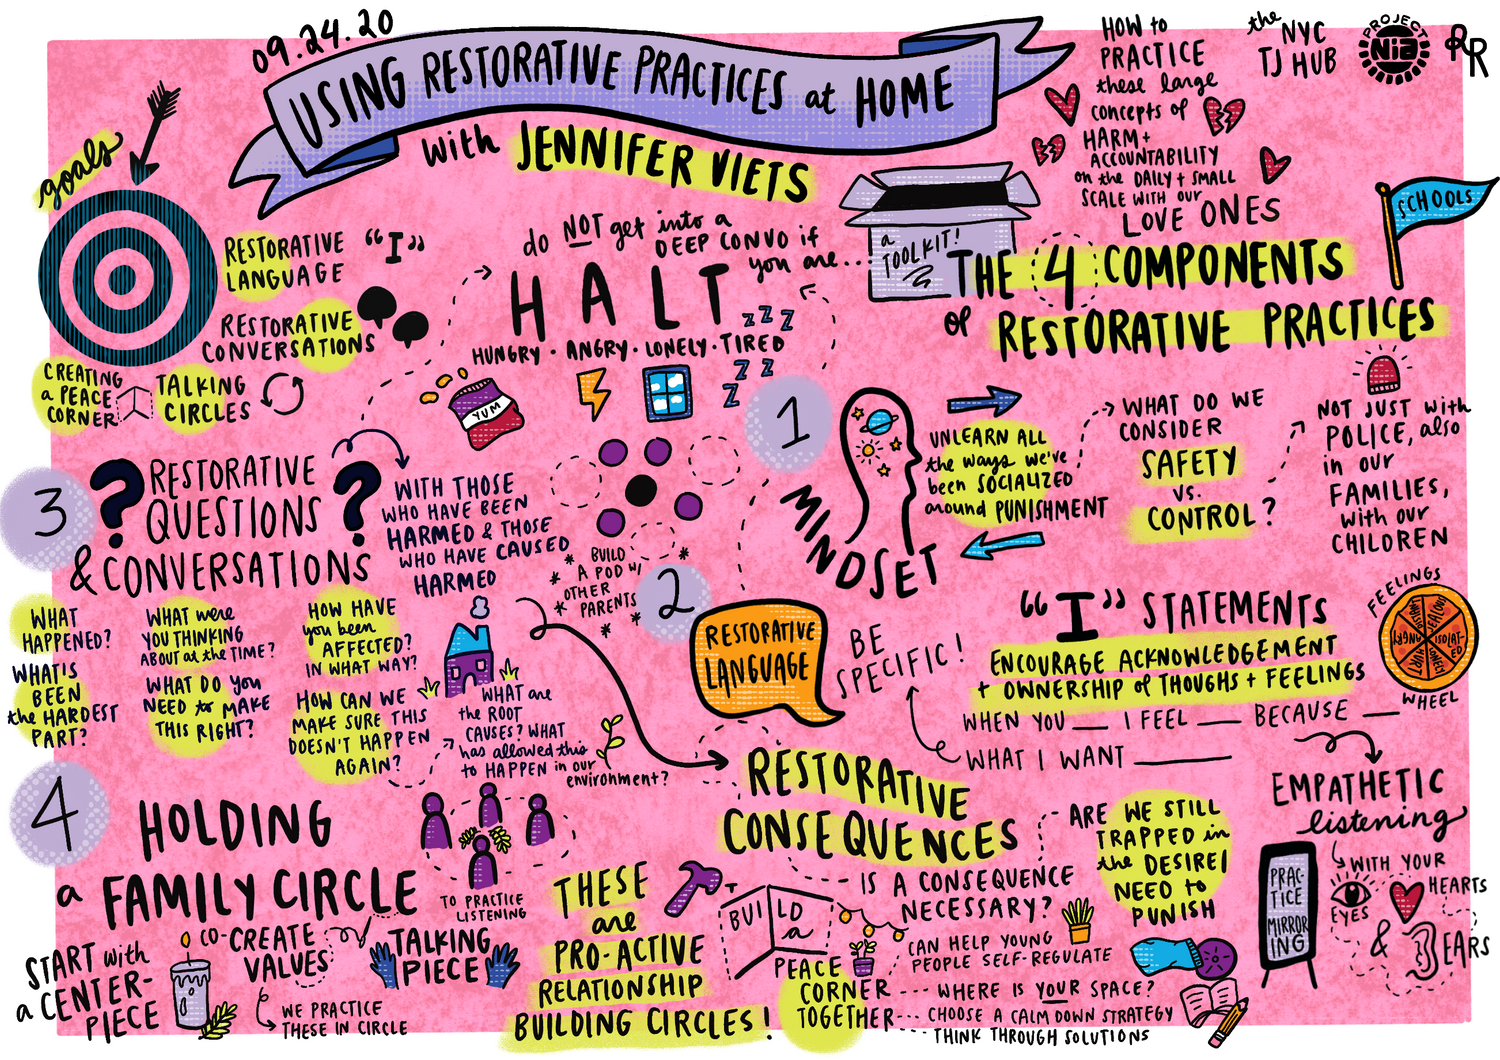 09.24.20
USING RESTORATIVE PRACTICES at HOME
with JENNIFER VIETS
HOW to
PRACTICE
these large
concepts of
HARM +
ACCOUNTABILITY
on the DAILY + SMALL
SCALE WITH our
LOVE ONES
the
NYC
TJ HUB
PROJECT
NIA
RR
goals
RESTORATIVE
LANGUAGE
"I"
RESTORATIVE
CONVERSATIONS
CREATING
a PEACE
CORNER
TALKING
CIRCLES
do NOT get into a
DEEP CONVO if
you are...
HALT
HUNGRY · ANGRY · LONELY · TIRED
z z z
z z z
YUM
a
TOOLKIT!
THE 4 COMPONENTS
of RESTORATIVE PRACTICES
SCHOOLS
1
MINDSET
UNLEARN ALL
the ways we've
been SOCIALIZED
around PUNISHMENT
WHAT DO WE
CONSIDER
SAFETY
vs.
CONTROL?
NOT JUST with
POLICE, also
in our
FAMILIES,
with our
CHILDREN
2
RESTORATIVE
LANGUAGE
BE
SPECIFIC!
"I" STATEMENTS
ENCOURAGE ACKNOWLEDGEMENT
+ OWNERSHIP of THOUGHS + FEELINGS
WHEN YOU __ I FEEL __ BECAUSE __
WHAT I WANT ______
FEELINGS
WHEEL
JEALOUS
ISOLATED
LONELY
HURT
HUNGRY
EMPATHETIC
listening
WITH YOUR
EYES
HEARTS
& EARS
PRAC-
TICE
MIRROR
ING
BUILD
A POD w/
OTHER
PARENTS
3
RESTORATIVE
QUESTIONS
& CONVERSATIONS
? ?
WITH THOSE
WHO HAVE BEEN
HARMED & THOSE
WHO HAVE CAUSED
HARMED
WHAT
HAPPENED?
WHAT IS
BEEN
the HARDEST
PART?
WHAT were
YOU THINKING
ABOUT at the TIME?
WHAT DO YOU
NEED to MAKE
THIS RIGHT?
HOW HAVE
you been
AFFECTED?
IN WHAT WAY?
HOW CAN WE
MAKE SURE THIS
DOESN'T HAPPEN
AGAIN?
WHAT are
the ROOT
CAUSES? WHAT
has allowed this
to HAPPEN in our
environment?
RESTORATIVE
CONSEQUENCES
IS A CONSEQUENCE
NECESSARY?
ARE WE STILL
TRAPPED in
the DESIRE/
NEED to
PUNISH
4
HOLDING
a FAMILY CIRCLE
TO PRACTICE
LISTENING
START with
a CENTER-
PIECE
CO-CREATE
VALUES
WE PRACTICE
THESE IN CIRCLE
TALKING
PIECE
THESE
are
PRO-ACTIVE
RELATIONSHIP
BUILDING CIRCLES!
BUILD
a
PEACE
CORNER
TOGETHER
CAN HELP YOUNG
PEOPLE SELF-REGULATE
WHERE IS YOUR SPACE?
CHOOSE A CALM DOWN STRATEGY
THINK THROUGH SOLUTIONS